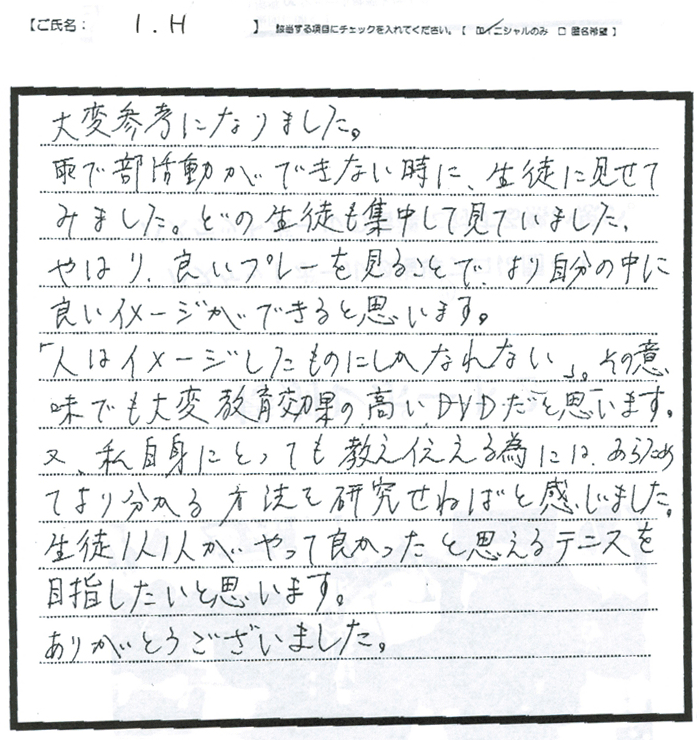 【ご氏名： I.H 】 該当する項目にチェックを入れてください。【 ☑イニシャルのみ □ 匿名希望 】
大変参考になりました。
雨で部活動ができない時に、生徒に見せて
みました。どの生徒も集中して見ていました、
やはり、良いプレーを見ることで、より自分の中に
良いイメージができると思います。
「人はイメージしたものにしかなれない」。その意
味でも大変教育効果の高いDVDだと思います。
又、私自身にとっても教え伝える為には、あらため
てより分かる方法を研究せねばと感じました。
生徒1人1人がやって良かったと思えるテニスを
目指したいと思います。
ありがとうございました。